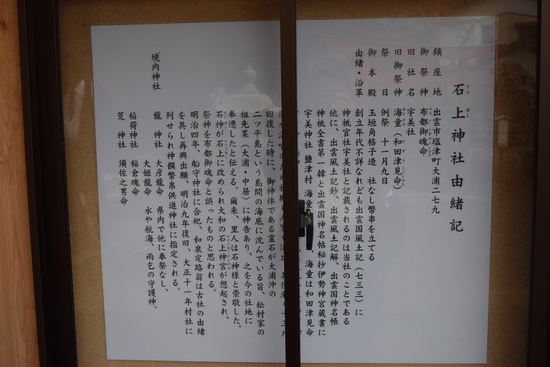 石上神社由緒記
鎮座地　出雲市塩津町大浦二七九
御祭神　布都御魂命
旧社名　宇美社
旧御祭神　海童（和田津見命）
例祭　十一月九日
御本殿　玉垣角格子造　社なし幣串を立てる
由緒・沿革　創立年代不詳なれども出雲国風土記（七三三）に
神祇官社宇美社と記載されるのは当社のことである
他に、出雲風土記鈔、出雲風土記解、出雲国神名帳
神祇全書第一輯と出雲国神名帳秘抄伊勢神宮蔵書に
宇美神社　塩津村　海童
海童は和田津見命
回復した時に、御神体である霊石が大浦沖の
二ツ平島という島間の海底に沈んでいる旨、松村家の
祖先某（大浦・中居）に神告あり、之を今の社地に
奉遷したと伝える。爾来、里人は石神様と崇敬した。
石神が石上に改められ大和の石上神宮が想起され、
祭神を布都御魂命と誤ったものと思われる。
明治四年、船守神社に合祀、和泉定路翁は古社の由緒
を具し再興出願、明治九年復旧、大正十一年村社に
列せられ神饌幣帛供進神社に指定される。
境内神社　龍神社　大彦龍命　県内で他に奉祭なし、
大姫龍命　水や航海、雨乞の守護神。
稲荷神社　稲倉魂命
荒神社　須佐之男命